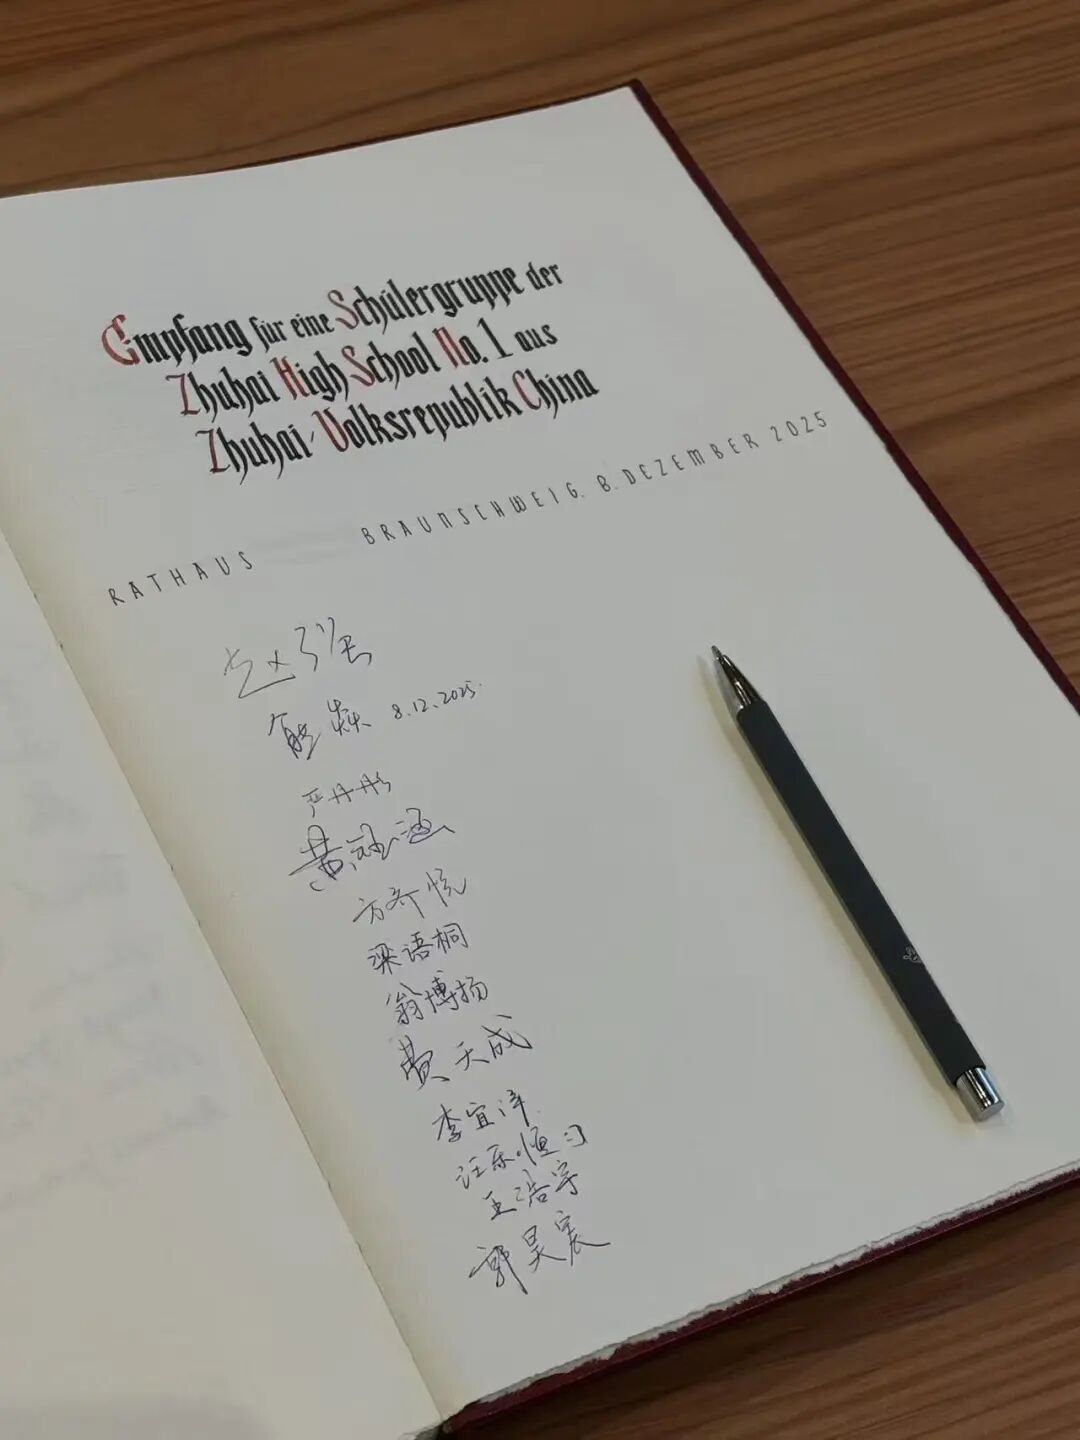 Empfang für eine Schülergruppe der
Zhuhai High School No. 1 aus
Zhuhai, Volksrepublik China
RATHAUS BRAUNSCHWEIG, 8. DEZEMBER 2025
赵强
熊焱 8.12.2025.
严丹彤
黄冠涵
方齐悦
梁语桐
翁博扬
费天成
李宜泽
汪乐恒
王浩宇
郭昊宸